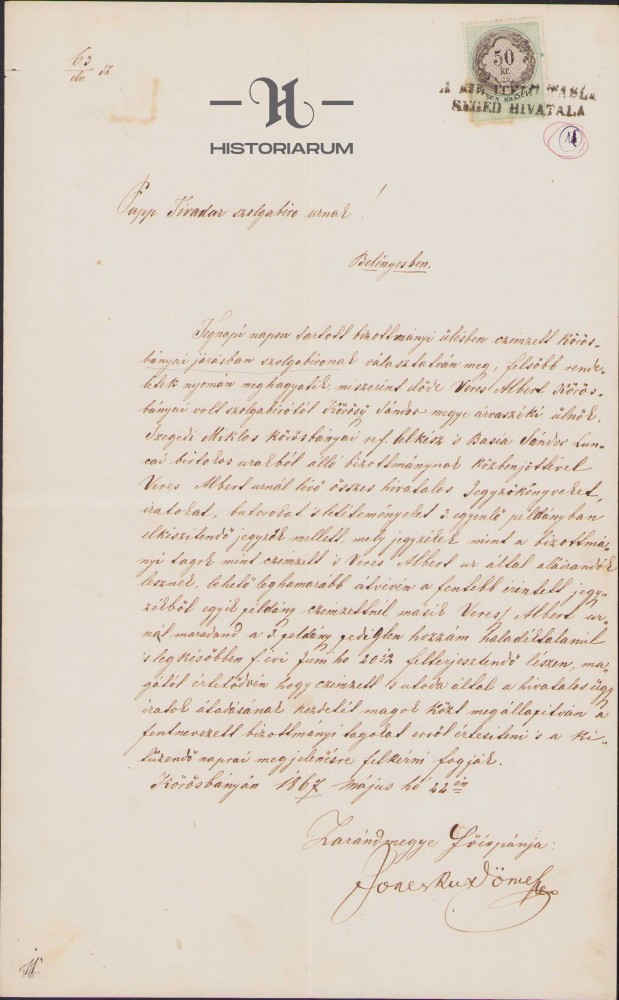 63
eln.
50
kr.
SEGÉD HIVATALA
HISTORIARUM
Papp Tivadar szolgabíró urnak!
Belényesben.
Tegnapi napon tartott bizottmányi ülésben czimzett Körös-
bányai járásban szolgabirónak választatván meg, felsőbb rende-
letek nyomán meghagyatik, miszerint előde Veres Albert Körös-
bányai volt szolgabirótól Körösy Sándor megye árvaszéki ülnök,
Szegedi Miklos körösbányai ref. lelkész 's Basia Sándor Lun-
cai birtokos urakból álló bizottmánynak közbenjöttével
Veres Albert urnál lévő összes hivatalos Jegyzőkönyveket,
iratokat, butorokat 's letéteményeket 3 egyenlő példányban
elkészitendő jegyzék mellett, mely jegyzékek mint a bizottmá-
nyi tagok mint czimzett 's Veres Albert ur által aláirandók
lesznek, lehető leghamarább átvévén a fentebb érintett jegy-
zékből egyik példány czimzettnél masik Veres Albert ur-
nál maradand a 3. példány pediglen hozzám haladéktalanul
's legkésőbben f. évi Juni hó 20ig felterjesztendő lészen, ma-
gától értetődvén hogy czimzett 's utóda által a hivatalos ügy-
iratok átadásának kezdetét magok közt megállapitván a
fentnevezett bizottmányi tagokat erről értesiteni 's a ki-
tüzendő naprai megjelenésre felkérni fogják.
Körösbányán 1867 május hó 22én
Zarándmegye Főispánja: